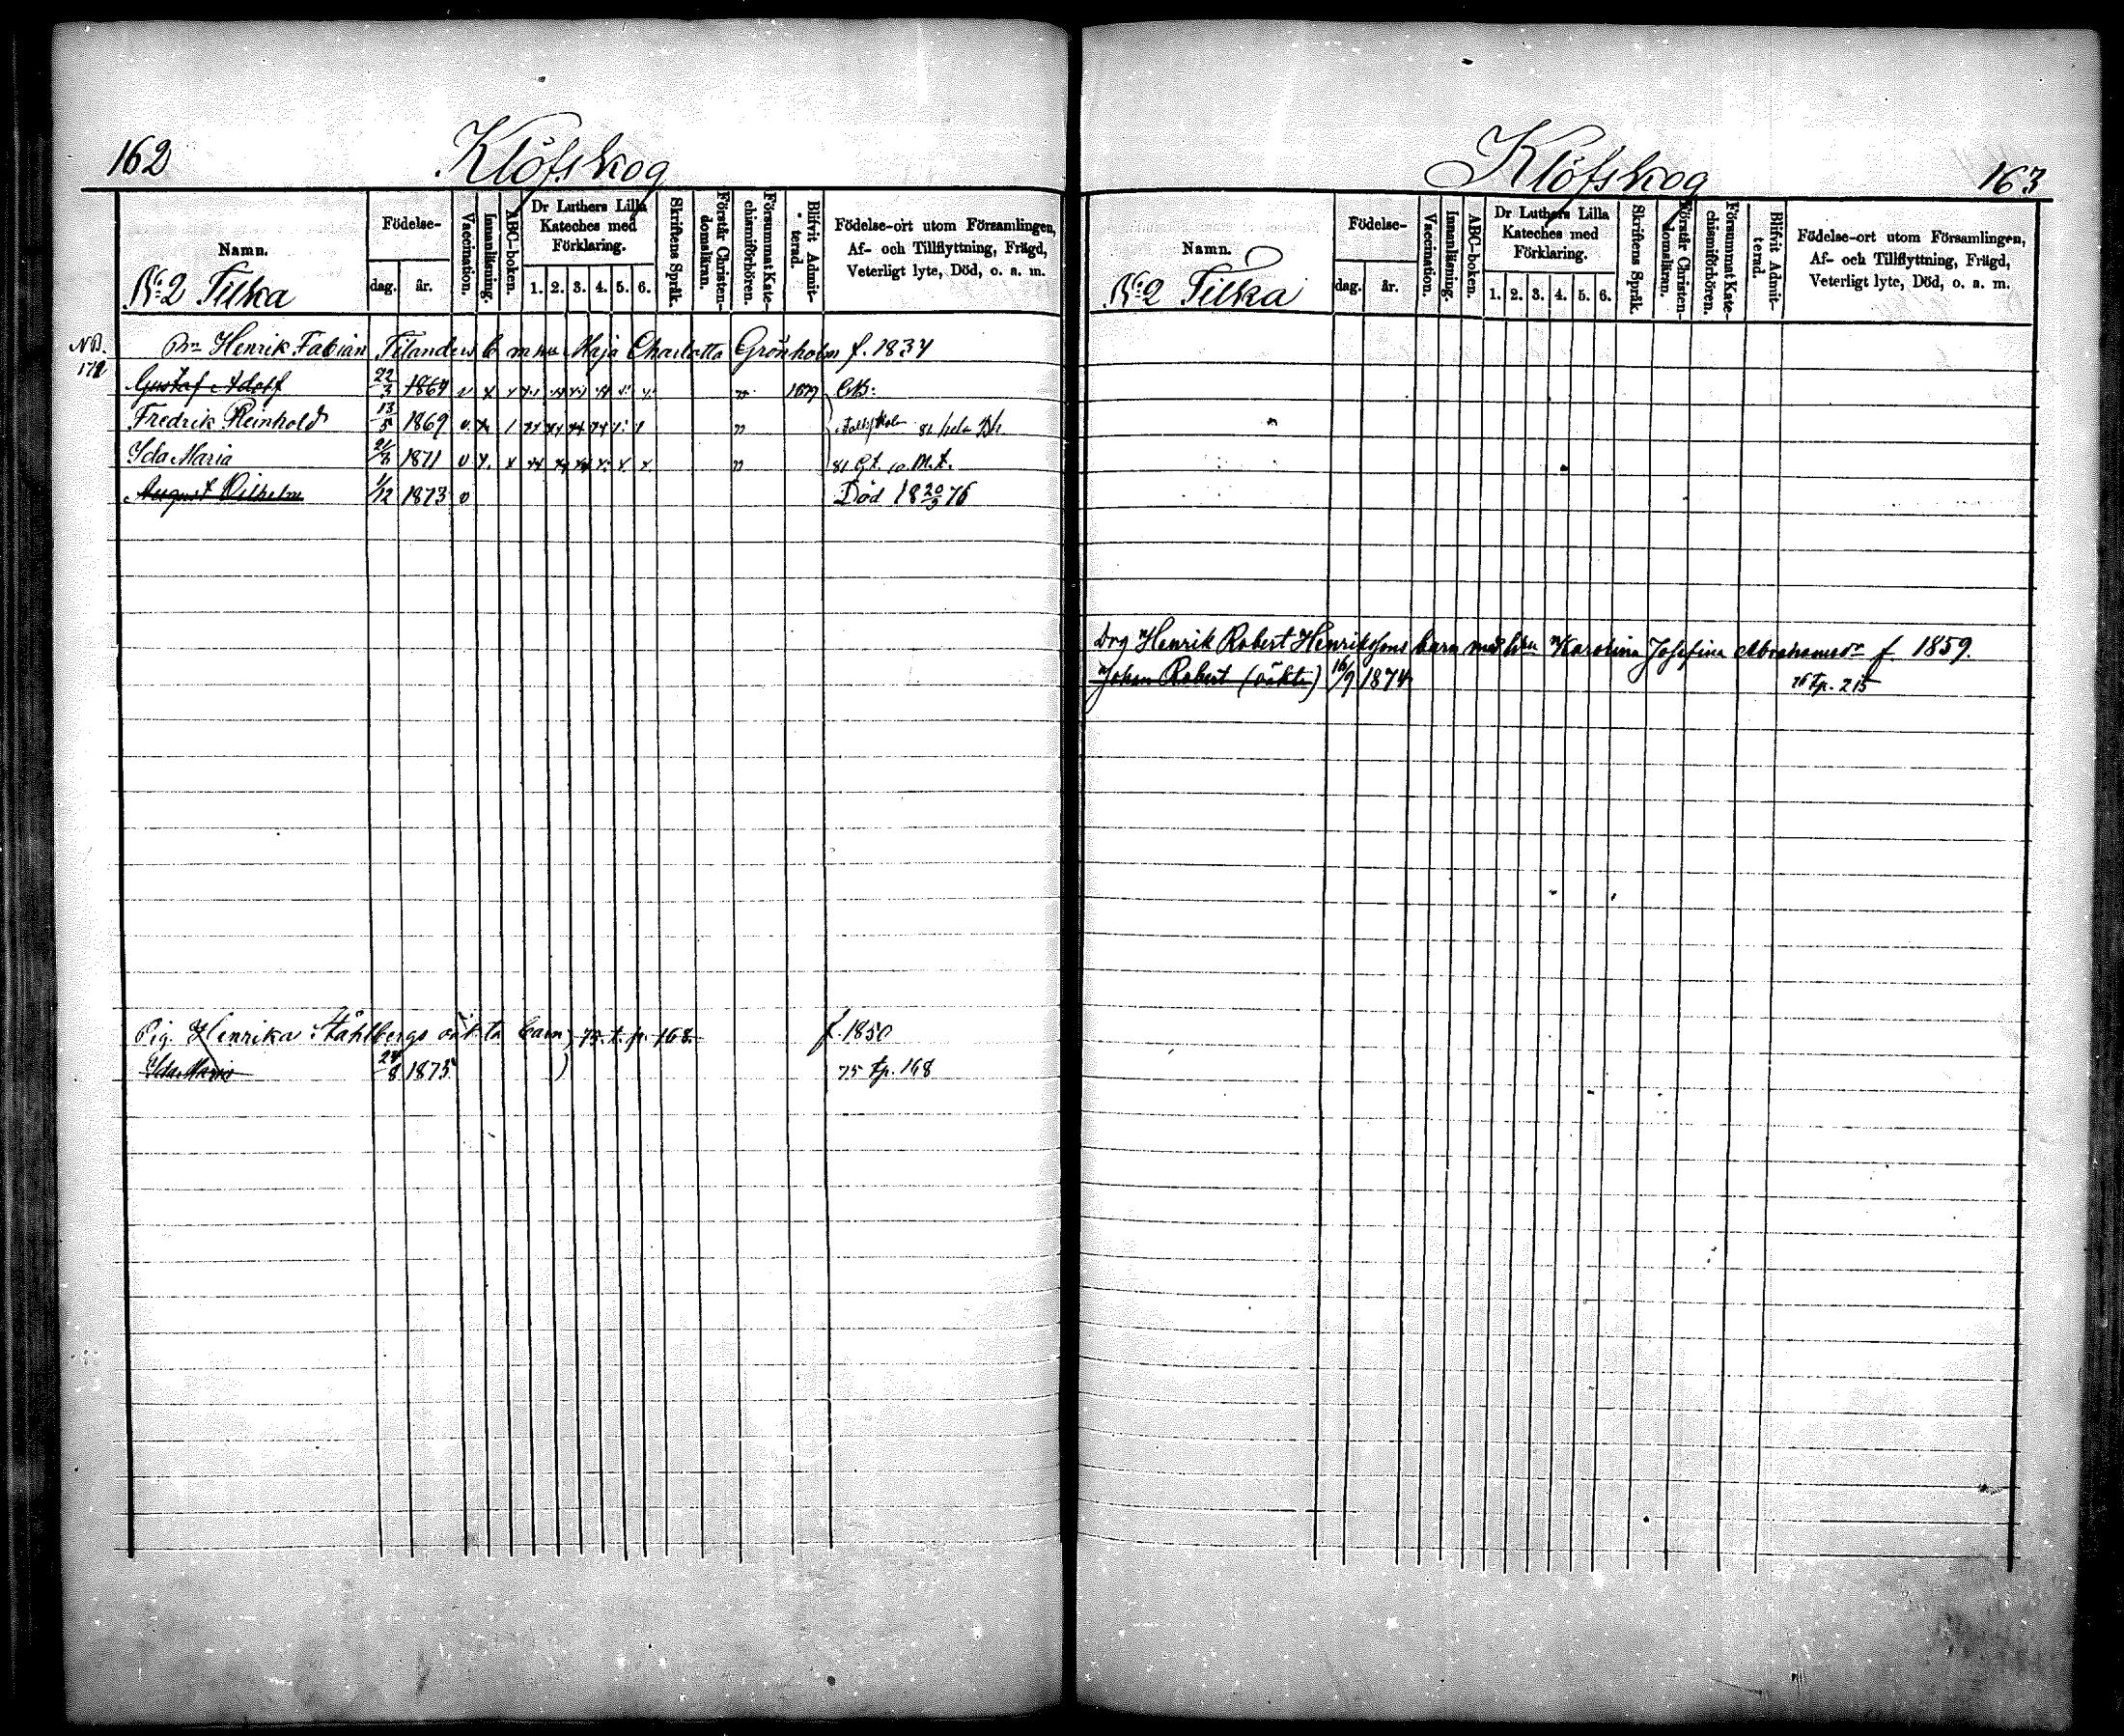 162 Klöfskog
Namn. Födelse- dag. år. Vaccination. Innanläsning. ABC-boken. Dr Luthers Lilla Kateches med Förklaring. 1. 2. 3. 4. 5. 6. Skriftens Språk. Förstår Christendomsläran. Försummat Katechismiförhören. Blifvit Admitterad. Födelse-ort utom Församlingen, Af- och Tillflyttning, Frägd, Veterligt lyte, Död, o. a. m.
No 2 Tilka
NB. Bn Henrik Fabian Tilanders b m hu Maja Charlotta Grönholm f. 1834
172
Gustaf Adolf 22/3 1864 v x 1879
Fredrik Reinhold 13/5 1869 v x 1 81 hela
Ida Maria 1871 v x x 81
August Vilhelm 1/12 1873 v Död 18 20/3 76
Pig. Henrika Ståhlbergs oäkta barn, 75. t. p. 168. f. 1850
Ida Maria 24/8 1875 75 tp. 168
Klöfskog 163
Namn. Födelse- dag. år. Vaccination. Innanläsning. ABC-boken. Dr Luthers Lilla Kateches med Förklaring. 1. 2. 3. 4. 5. 6. Skriftens Språk. Förstår Christendomsläran. Försummat Katechismiförhören. Blifvit Admitterad. Födelse-ort utom Församlingen, Af- och Tillflyttning, Frägd, Veterligt lyte, Död, o. a. m.
No 2 Tilka
Drg Henrik Robert Henrikssons barn med hu Karolina Josefina Abrahamsdr f. 1859.
Johan Robert (oäkta) 16/9 1874 76 tp. 215